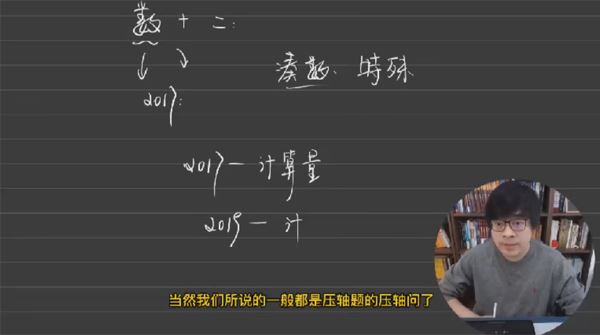 数 + 二:
凑数. 特殊
2017:
2017 — 计算量
2019 — 计
当然我们所说的一般都是压轴题的压轴问了